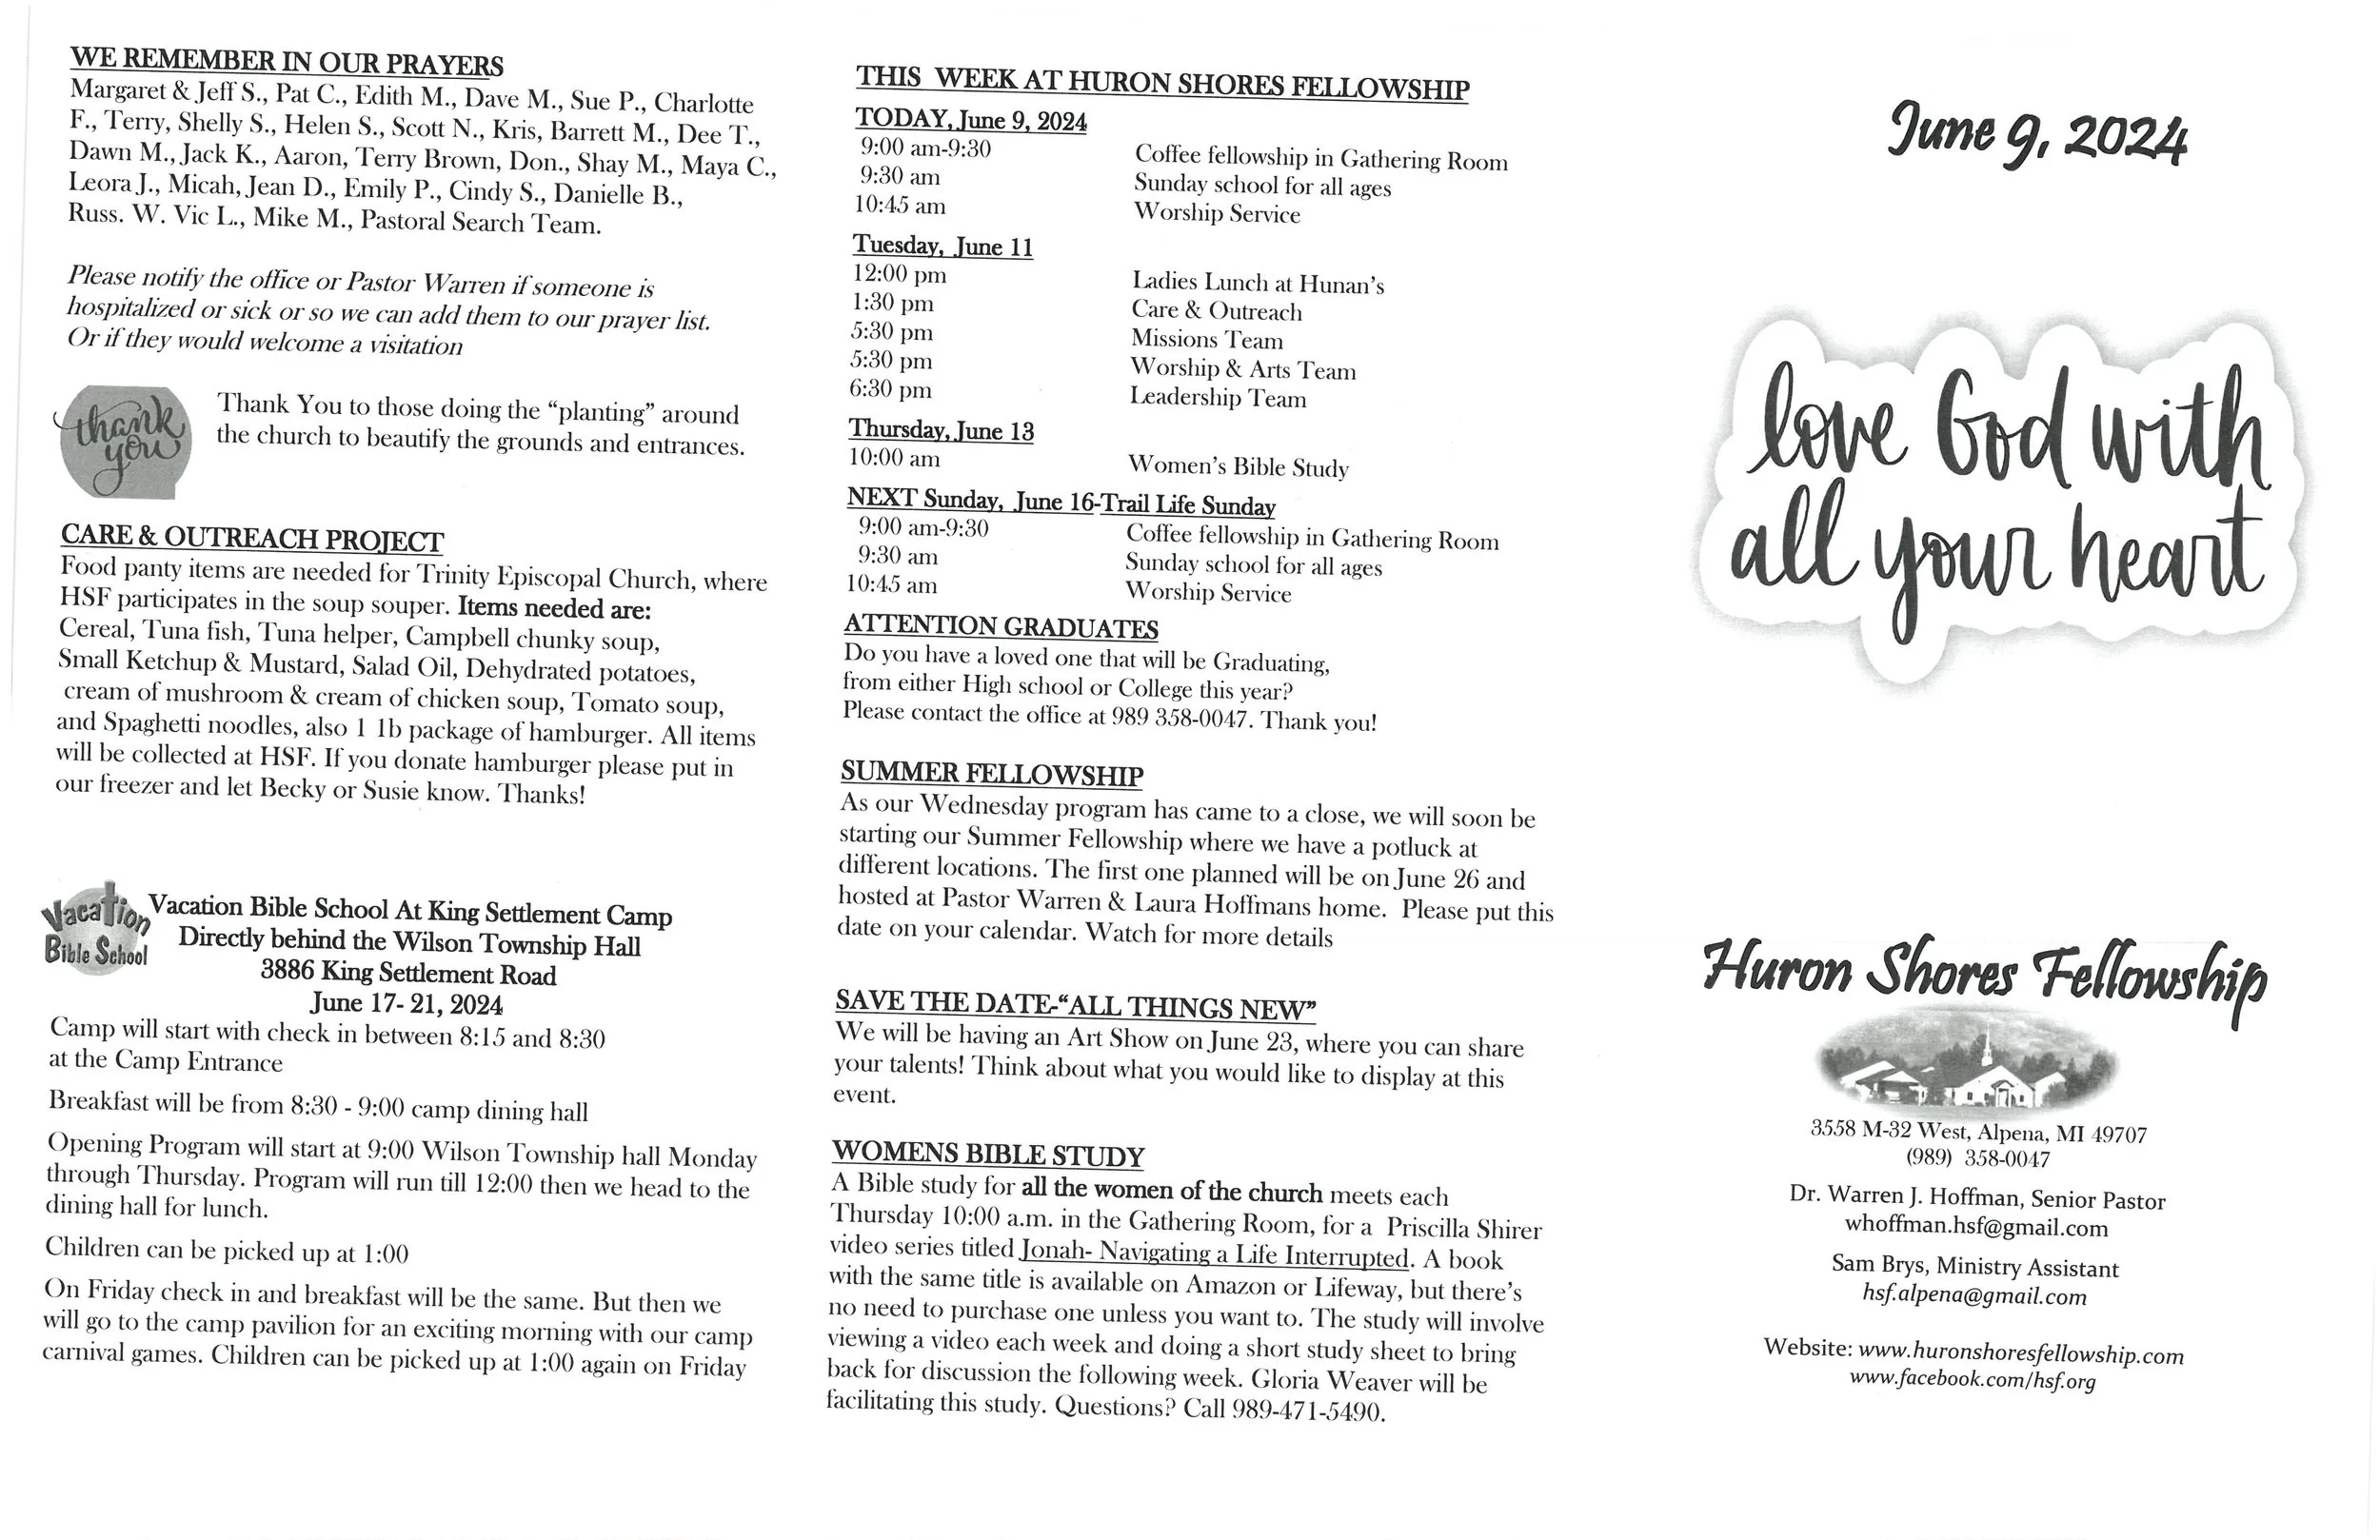 WE REMEMBER IN OUR PRAYERS
Margaret & Jeff S., Pat C., Edith M., Dave M., Sue P., Charlotte
F., Terry, Shelly S., Helen S., Scott N., Kris, Barrett M., Dee T.,
Dawn M., Jack K., Aaron, Terry Brown, Don., Shay M., Maya C.,
Leora J., Micah, Jean D., Emily P., Cindy S., Danielle B.,
Russ. W. Vic L., Mike M., Pastoral Search Team.
Please notify the office or Pastor Warren if someone is
hospitalized or sick or so we can add them to our prayer list.
Or if they would welcome a visitation
thank
you
Thank You to those doing the “planting” around
the church to beautify the grounds and entrances.
CARE & OUTREACH PROJECT
Food panty items are needed for Trinity Episcopal Church, where
HSF participates in the soup souper. Items needed are:
Cereal, Tuna fish, Tuna helper, Campbell chunky soup,
Small Ketchup & Mustard, Salad Oil, Dehydrated potatoes,
cream of mushroom & cream of chicken soup, Tomato soup,
and Spaghetti noodles, also 1 1b package of hamburger. All items
will be collected at HSF. If you donate hamburger please put in
our freezer and let Becky or Susie know. Thanks!
Vacation
Bible School
Vacation Bible School At King Settlement Camp
Directly behind the Wilson Township Hall
3886 King Settlement Road
June 17- 21, 2024
Camp will start with check in between 8:15 and 8:30
at the Camp Entrance
Breakfast will be from 8:30 - 9:00 camp dining hall
Opening Program will start at 9:00 Wilson Township hall Monday
through Thursday. Program will run till 12:00 then we head to the
dining hall for lunch.
Children can be picked up at 1:00
On Friday check in and breakfast will be the same. But then we
will go to the camp pavilion for an exciting morning with our camp
carnival games. Children can be picked up at 1:00 again on Friday
THIS WEEK AT HURON SHORES FELLOWSHIP
TODAY, June 9, 2024
9:00 am-9:30 Coffee fellowship in Gathering Room
9:30 am Sunday school for all ages
10:45 am Worship Service
Tuesday, June 11
12:00 pm Ladies Lunch at Hunan's
1:30 pm Care & Outreach
5:30 pm Missions Team
5:30 pm Worship & Arts Team
6:30 pm Leadership Team
Thursday, June 13
10:00 am Women's Bible Study
NEXT Sunday, June 16-Trail Life Sunday
9:00 am-9:30 Coffee fellowship in Gathering Room
9:30 am Sunday school for all ages
10:45 am Worship Service
ATTENTION GRADUATES
Do you have a loved one that will be Graduating,
from either High school or College this year?
Please contact the office at 989 358-0047. Thank you!
SUMMER FELLOWSHIP
As our Wednesday program has came to a close, we will soon be
starting our Summer Fellowship where we have a potluck at
different locations. The first one planned will be on June 26 and
hosted at Pastor Warren & Laura Hoffmans home. Please put this
date on your calendar. Watch for more details
SAVE THE DATE-“ALL THINGS NEW”
We will be having an Art Show on June 23, where you can share
your talents! Think about what you would like to display at this
event.
WOMENS BIBLE STUDY
A Bible study for all the women of the church meets each
Thursday 10:00 a.m. in the Gathering Room, for a Priscilla Shirer
video series titled Jonah- Navigating a Life Interrupted. A book
with the same title is available on Amazon or Lifeway, but there's
no need to purchase one unless you want to. The study will involve
viewing a video each week and doing a short study sheet to bring
back for discussion the following week. Gloria Weaver will be
facilitating this study. Questions? Call 989-471-5490.
June 9, 2024
love God with
all your heart
Huron Shores Fellowship
3558 M-32 West, Alpena, MI 49707
(989) 358-0047
Dr. Warren J. Hoffman, Senior Pastor
whoffman.hsf@gmail.com
Sam Brys, Ministry Assistant
hsf.alpena@gmail.com
Website: www.huronshoresfellowship.com
www.facebook.com/hsf.org